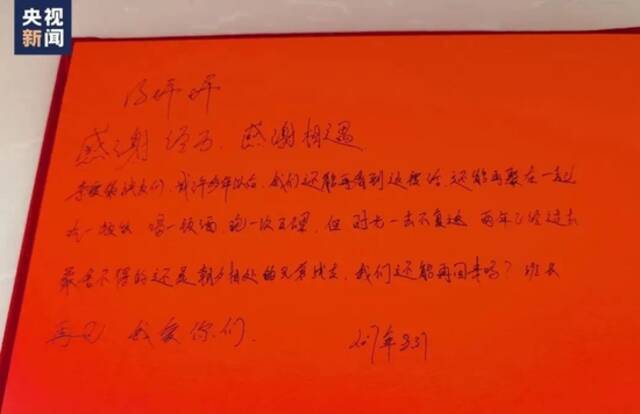 央视
新闻
感谢经历，感谢相遇
亲爱的战友们，或许多年以后，我们还能再看到这段话，还能再聚在一起
吃一顿饭 喝一顿酒 跑一次五公里，但时光一去不复返 两年已经过去
最舍不得的还是朝夕相处的兄弟战友，我们还能再回来吗？班长
再见 我爱你们.